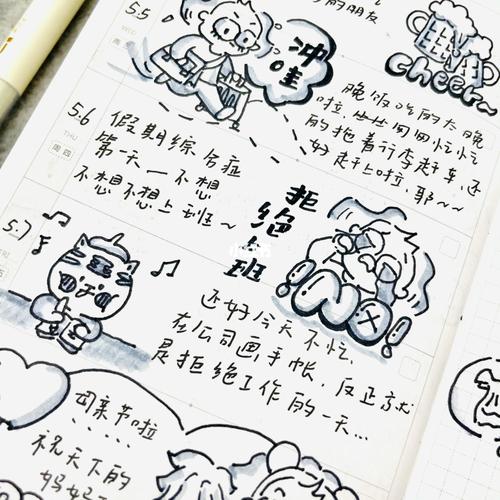 的朋友
5.5
WED
冲哇
cheer~
晚饭吃的太晚
啦,
的拖着行李赶车,还
好赶上啦,耶~~
5.6
THU
周四
假期综合症
第一天一不想
不想不想上班~
拒绝
班
NO!
5.7
FRI
还好今天不忙,
在公司画手帐,反正就
是拒绝工作的一天...
母亲节啦
......
祝天下的
妈妈